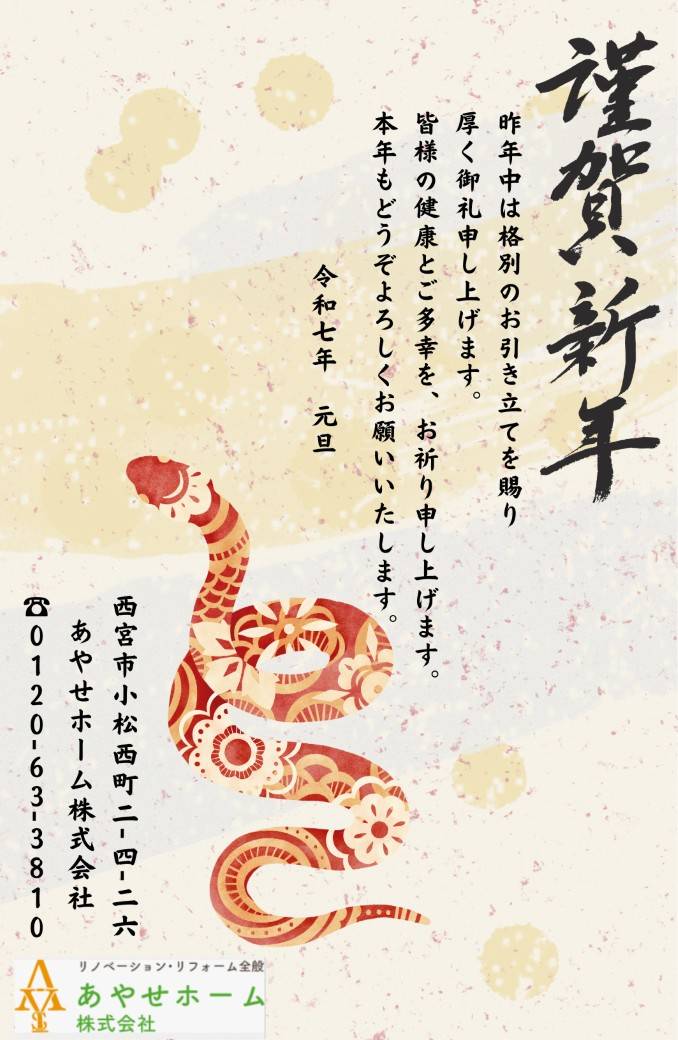 謹賀新年
昨年中は格別のお引き立てを賜り
厚く御礼申し上げます。
皆様の健康とご多幸を、お祈り申し上げます。
本年もどうぞよろしくお願いいたします。
令和七年　元旦
西宮市小松西町二-四-二六
あやせホーム株式会社
☎0120-63-3810
リノベーション・リフォーム全般
あやせホーム
株式会社